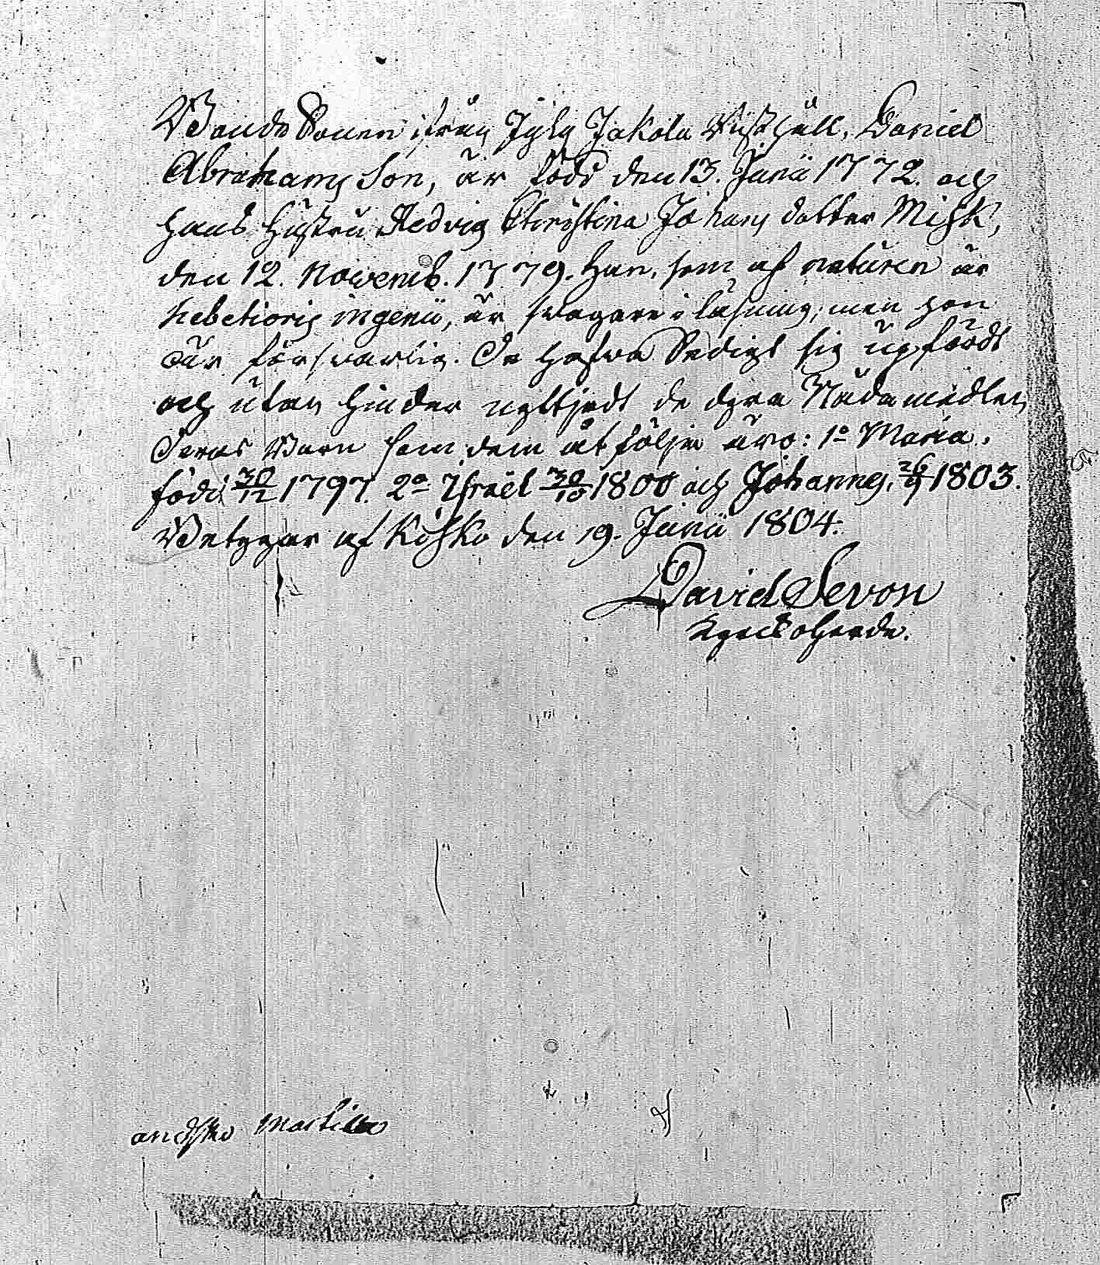 Bonde Sonen ifrån Jyly Jakola Rusthåll, Daniel
Abrahams Son, är född den 13. Junii 1772. och
hans hustru Hedvig Christina Johans dotter Misk,
den 12. Novemb. 1779. Han, som af naturen är
hebetioris ingenii, är svagare i läsning, men hon
är försvarlig. De hafva sedigt sig upfördt
och utan hinder nyttjadt de dyra Nådamedlen
Deras Barn som dem åtfölja äro: 1º Maria,
född 30/12 1797. 2º Israël 30/10 1800 och Johannes, 26/9 1803.
Betygar af Kosko den 19. Junii 1804.
David Sevon
Kyrckoherde.